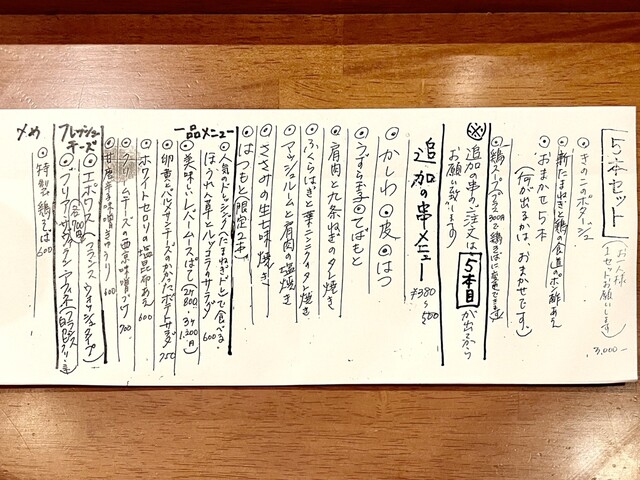 5本セット
(お一人様
1セットお願いします)
3,000-
◎きのこのポタージュ
◎新たまねぎと鶏の食道のポン酢あえ
◎おまかせ5本
(何が出るかは、おまかせです。)
◎鶏スーププラス300円で鶏そばに変更できます
※追加の串のご注文は 5本目 が出てから
お願い致します
追加の串メニュー ¥380〜500
◎かしわ ◎皮 ◎はつ
◎うずら玉子 ◎てばもと
◎肩肉と九条ねぎのタレ焼き
◎ふくらはぎと葉ニンニクのタレ焼き
◎マッシュルームと肩肉の塩焼き
◎ささみの生七味焼き
◎はつもと(限定2本)
一品メニュー
◎人気のドレッシング(たまねぎドレ)で食べる
ほうれん草とルッコラのサラダ 600
◎美味しいレバームースぱて(2ケ800・3ケ1,200円)
◎卵黄とパルメザンチーズのかためポテトサラダ 750
◎ホワイトセロリの塩昆布あえ 600
◎クリームチーズの西京味噌づけ 700
◎甘唐辛子の味噌きゅうり 600
フレッシュチーズ
◎エポワス(フランス ウォッシュタイプ)
(各700円)
◎ブリア・サヴァラン・アフィネ(フランス 白カビクリーミー)
〆め
◎特製鶏そば 600